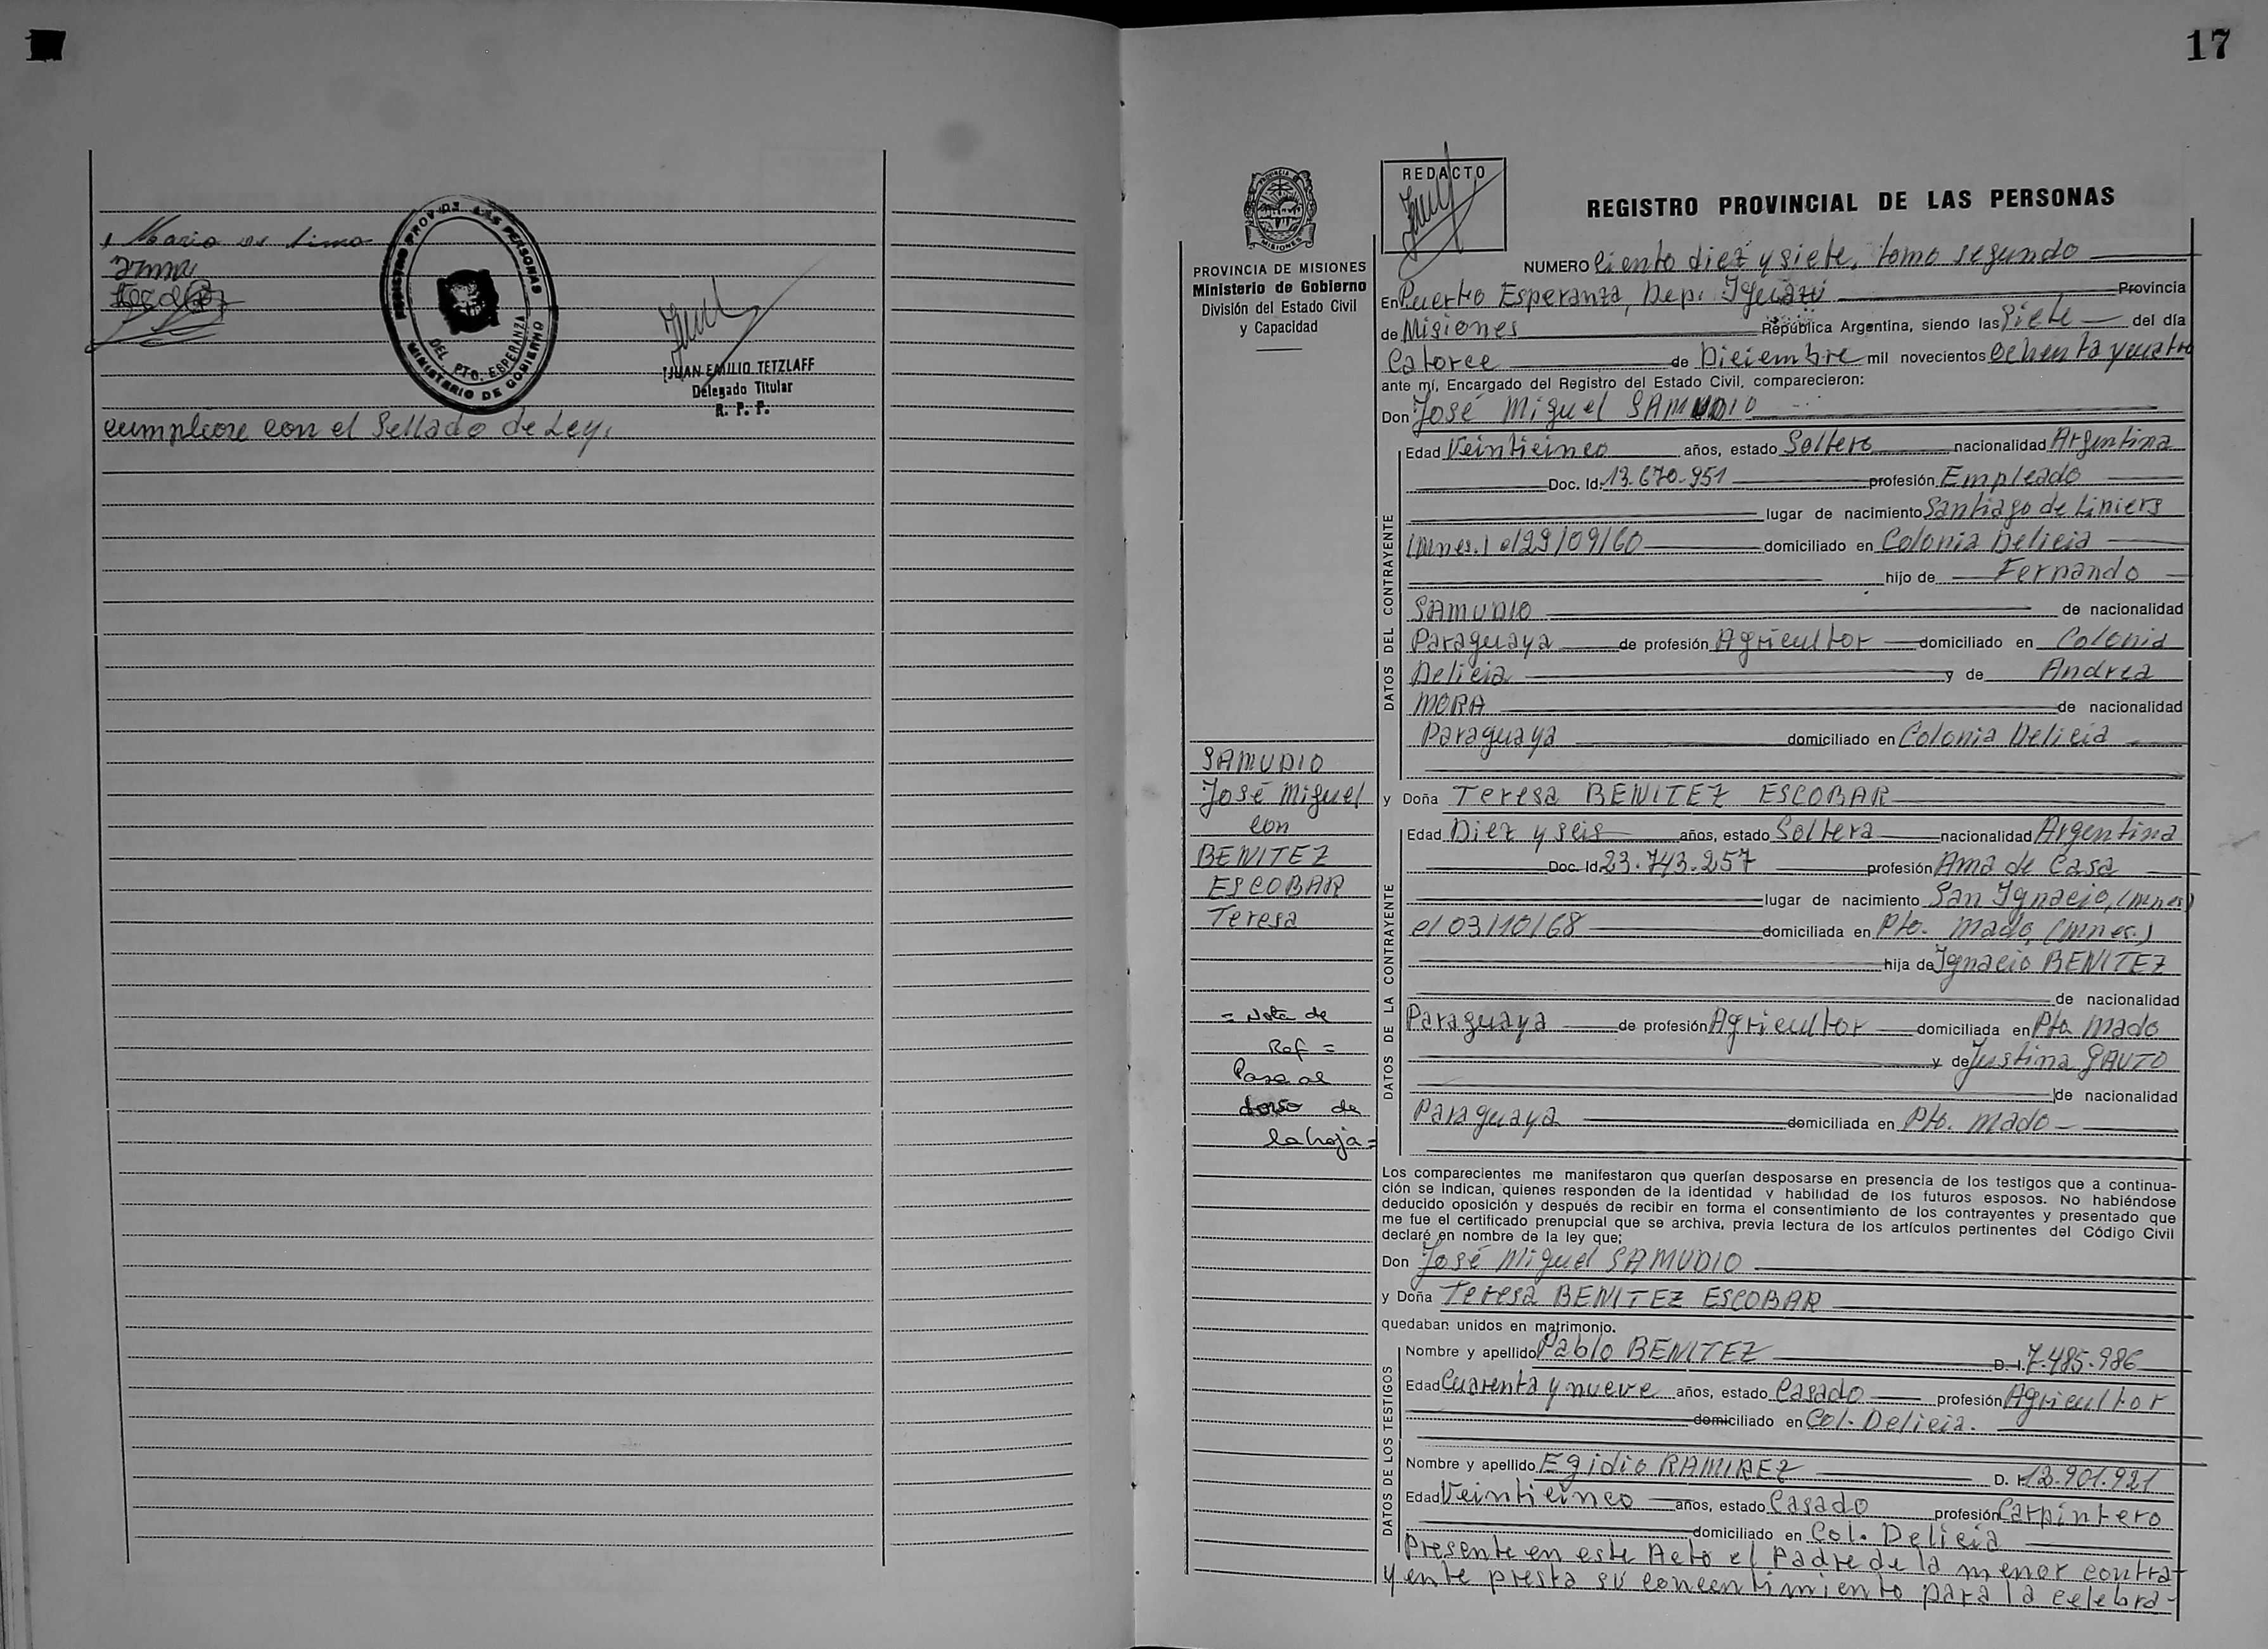 Mario
REGISTRO PROV. DE LAS PERSONAS
DEL. PTO. ESPERANZA
MINISTERIO DE GOBIERNO
JUAN EMILIO TETZLAFF
Delegado Titular
R. P. P.
cumpliose con el Sellado de Ley,
17
PROVINCIA DE MISIONES
Ministerio de Gobierno
División del Estado Civil
y Capacidad
SAMUDIO
José Miguel
con
BENITEZ
ESCOBAR
Teresa
= Nota de
Ref =
Pasa al
dorso de
la hoja =
REDACTO
REGISTRO PROVINCIAL DE LAS PERSONAS
NUMERO Ciento diez y siete, tomo segundo
En Puerto Esperanza, Dep. Iguazú Provincia
de Misiones República Argentina, siendo las Siete del día
Catorce de Diciembre mil novecientos Ochenta y cuatro
ante mí, Encargado del Registro del Estado Civil, comparecieron:
Don José Miguel SAMUDIO
DATOS DEL CONTRAYENTE
Edad Veinticinco años, estado Soltero nacionalidad Argentina
Doc. Id. 13.670.951 profesión Empleado
lugar de nacimiento Santiago de Liniers
(Mnes.) el 29/09/60 domiciliado en Colonia Delicia
hijo de Fernando
SAMUDIO de nacionalidad
Paraguaya de profesión Agricultor domiciliado en Colonia
Delicia y de Andrea
MORA de nacionalidad
Paraguaya domiciliado en Colonia Delicia
y Doña Teresa BENITEZ ESCOBAR
DATOS DE LA CONTRAYENTE
Edad Diez y seis años, estado Soltera nacionalidad Argentina
Doc. Id. 23.743.257 profesión Ama de Casa
lugar de nacimiento San Ignacio, (Mnes)
el 03/10/68 domiciliada en Pto. Mado, (Mnes.)
hija de Ignacio BENITEZ
de nacionalidad
Paraguaya de profesión Agricultor domiciliada en Pto. Mado
y de Justina GAUTO
de nacionalidad
Paraguaya domiciliada en Pto. Mado
Los comparecientes me manifestaron que querían desposarse en presencia de los testigos que a continua-
ción se indican, quienes responden de la identidad y habilidad de los futuros esposos. No habiéndose
deducido oposición y después de recibir en forma el consentimiento de los contrayentes y presentado que
me fue el certificado prenupcial que se archiva, previa lectura de los artículos pertinentes del Código Civil
declaré en nombre de la ley que;
Don José Miguel SAMUDIO
y Doña Teresa BENITEZ ESCOBAR
quedaban unidos en matrimonio.
DATOS DE LOS TESTIGOS
Nombre y apellido Pablo BENITEZ D. I. 7.485.986
Edad Cuarenta y nueve años, estado Casado profesión Agricultor
domiciliado en Col. Delicia.
Nombre y apellido Egidio RAMIREZ D. I. 12.901.921
Edad Veinticinco años, estado Casado profesión Carpintero
domiciliado en Col. Delicia
Presente en este Acto el Padre de la menor contra-
yente presta su concentimiento para la celebra-